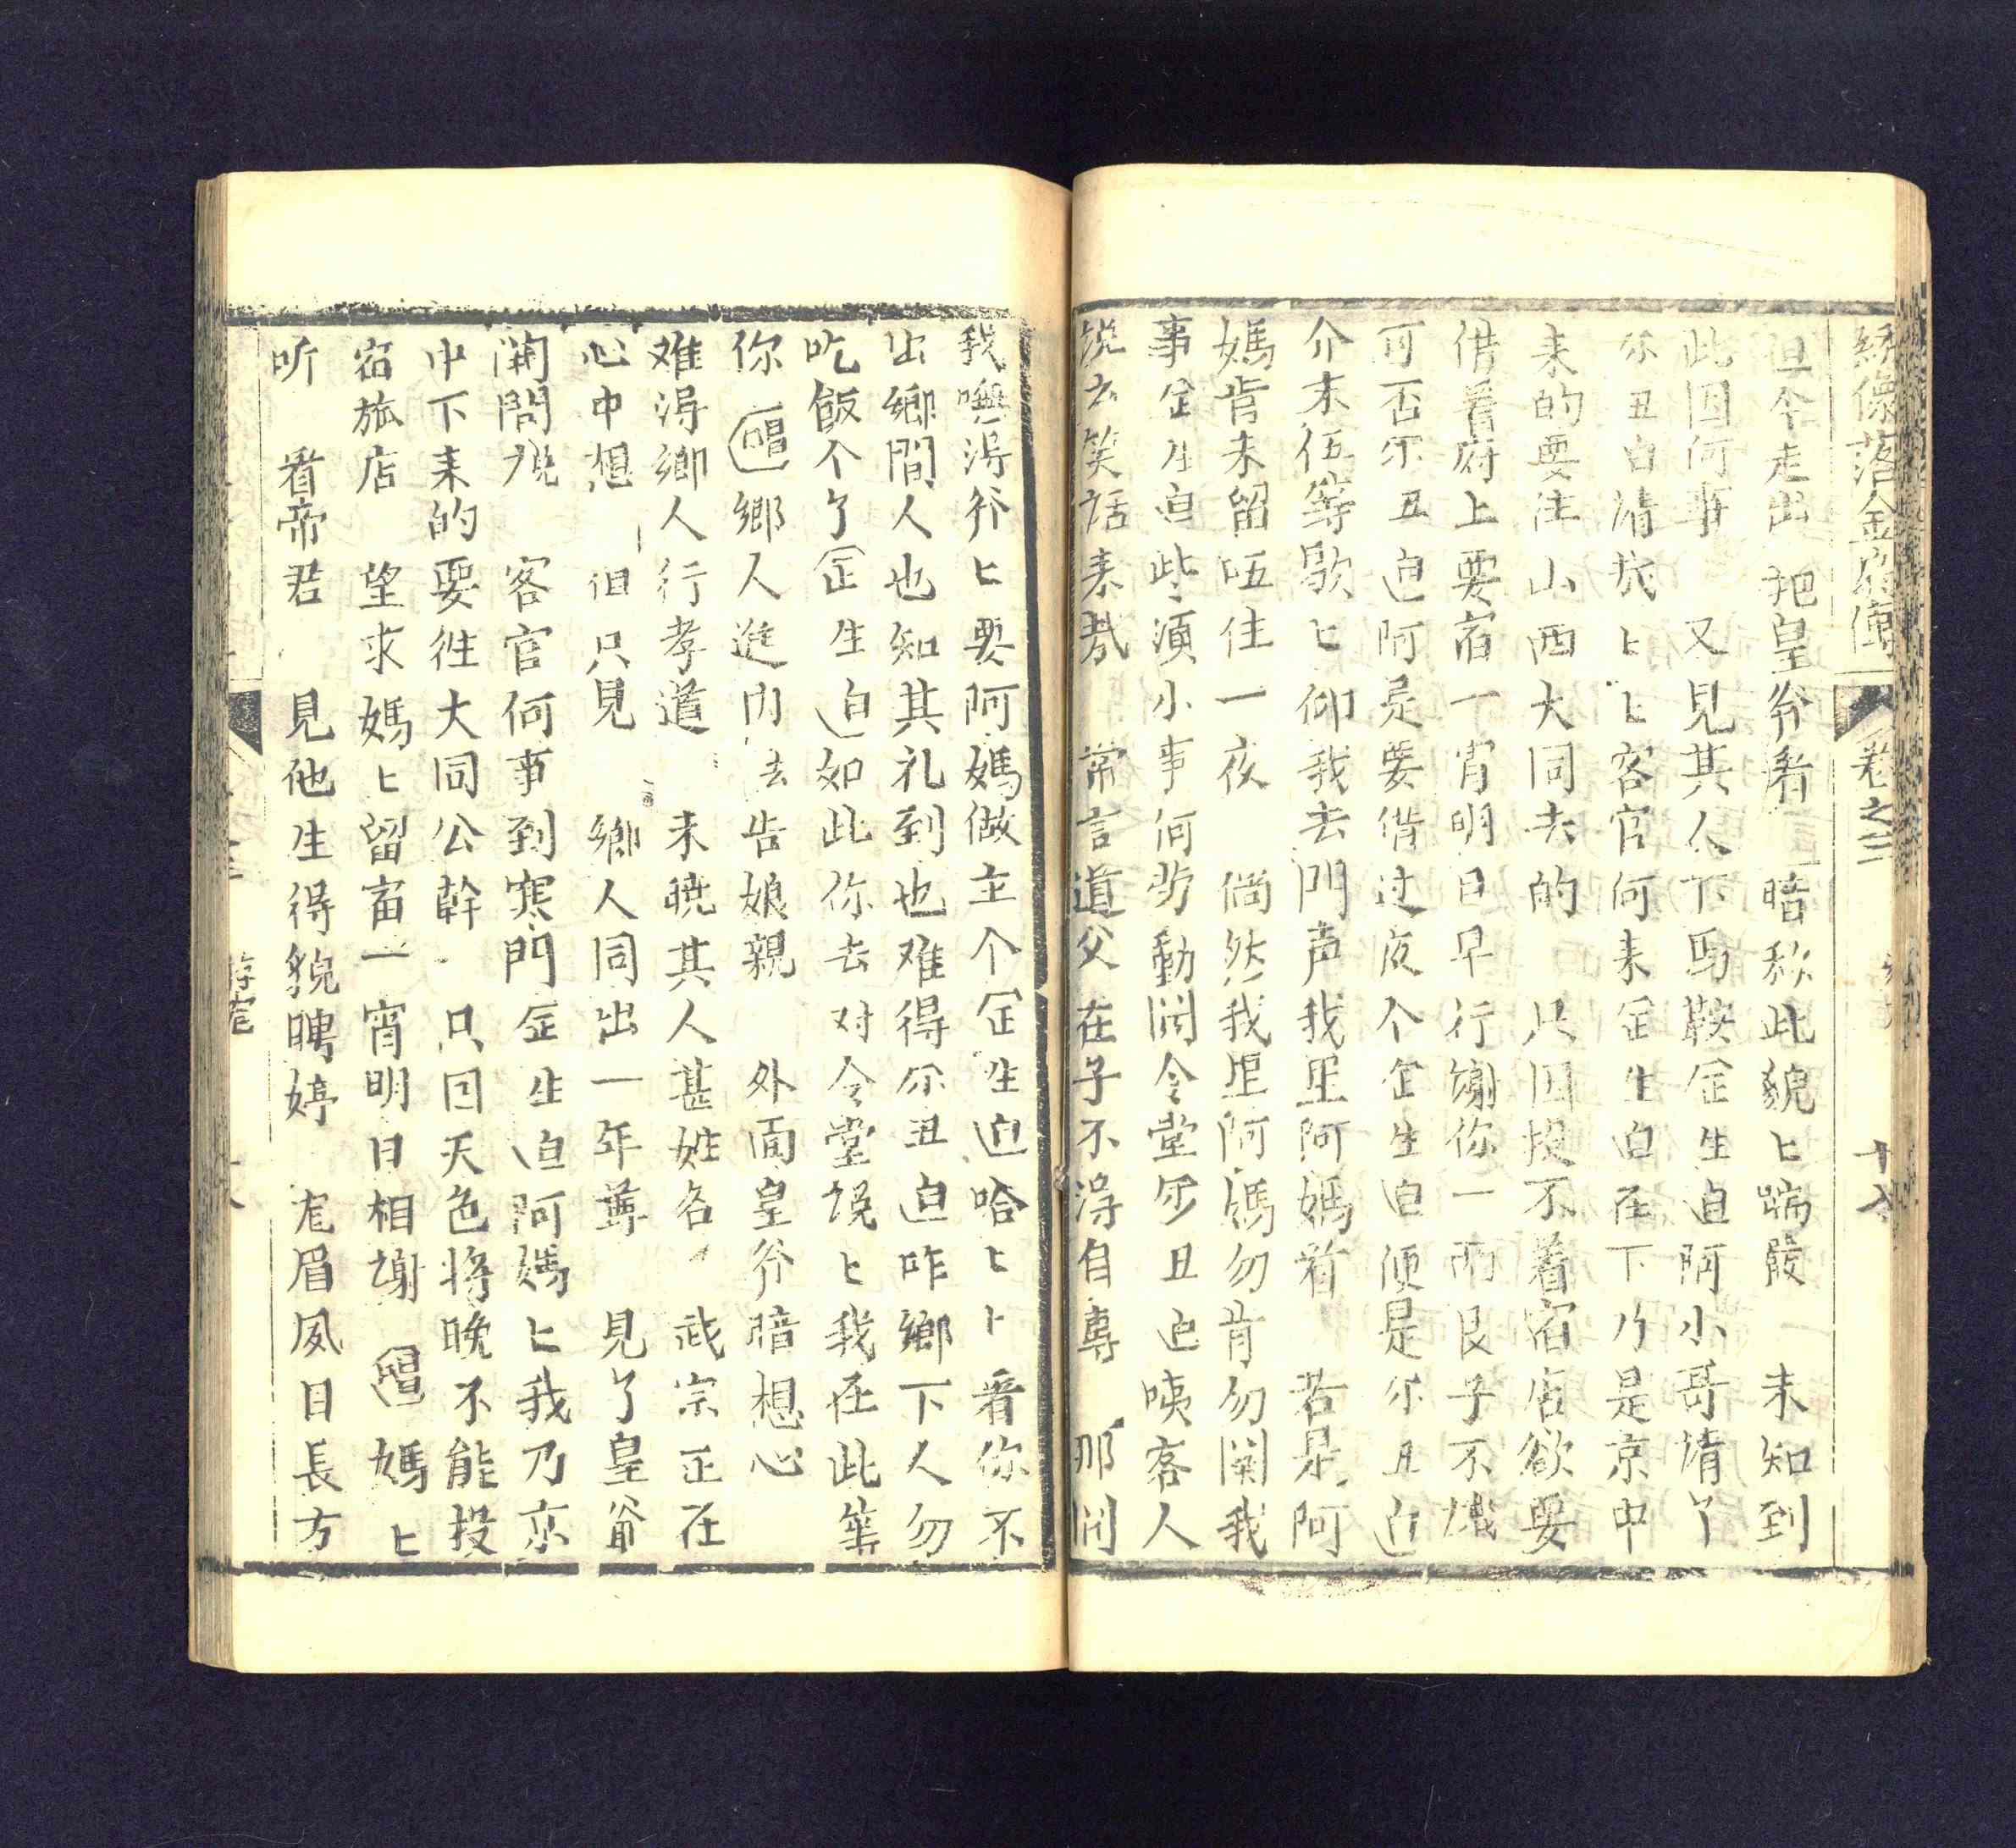 綉像落金扇傳 卷之二 十八
但个走出 把皇爷看 暗称此貌匕端嚴 未知到
此因何事 又見其人下馬鞍 正生廹阿小哥請了
尔丑白請於匕匕客官何来正生白在下乃是京中
来的要往山西大同去的 只因投不着宿店欲要
借着府上要宿一宵明日早行謝你一兩艮子不
可否尔丑廹阿是要借过夜个正生白便是尔丑廹
介末伍等歇匕仰我去門声我里阿媽看 若是阿
媽肯末留㕶住一夜 倘然我里阿媽勿肯勿関我
事正生廹此湏小事何労動問令堂尔丑廹咦客人
説去笑話来哉 常言道父在子不淂自專 那間
我嘸淂爷匕要阿媽做主个正生廹哈匕卜看你不
出鄉間人也知其礼到也难得尔丑廹咋鄉下人勿
吃飯个了正生廹如此你去对令堂説匕我在此等
你 唱鄉人進内去告娘親 外面皇爷暗想心
难淂鄉人行孝道 未曉其人甚姓名 武宗正在
心中想 但只見 鄉人同出一年尊 見了皇爺
開問説 客官何事到寒門正生廹阿媽匕我乃京
中下来的要往大同公幹 只因天色將晚不能投
宿旅店 望求媽匕留宿一宵明日相謝 唱媽匕
听 看帝君 見他生得貌聘婷 龙眉鳳目長方